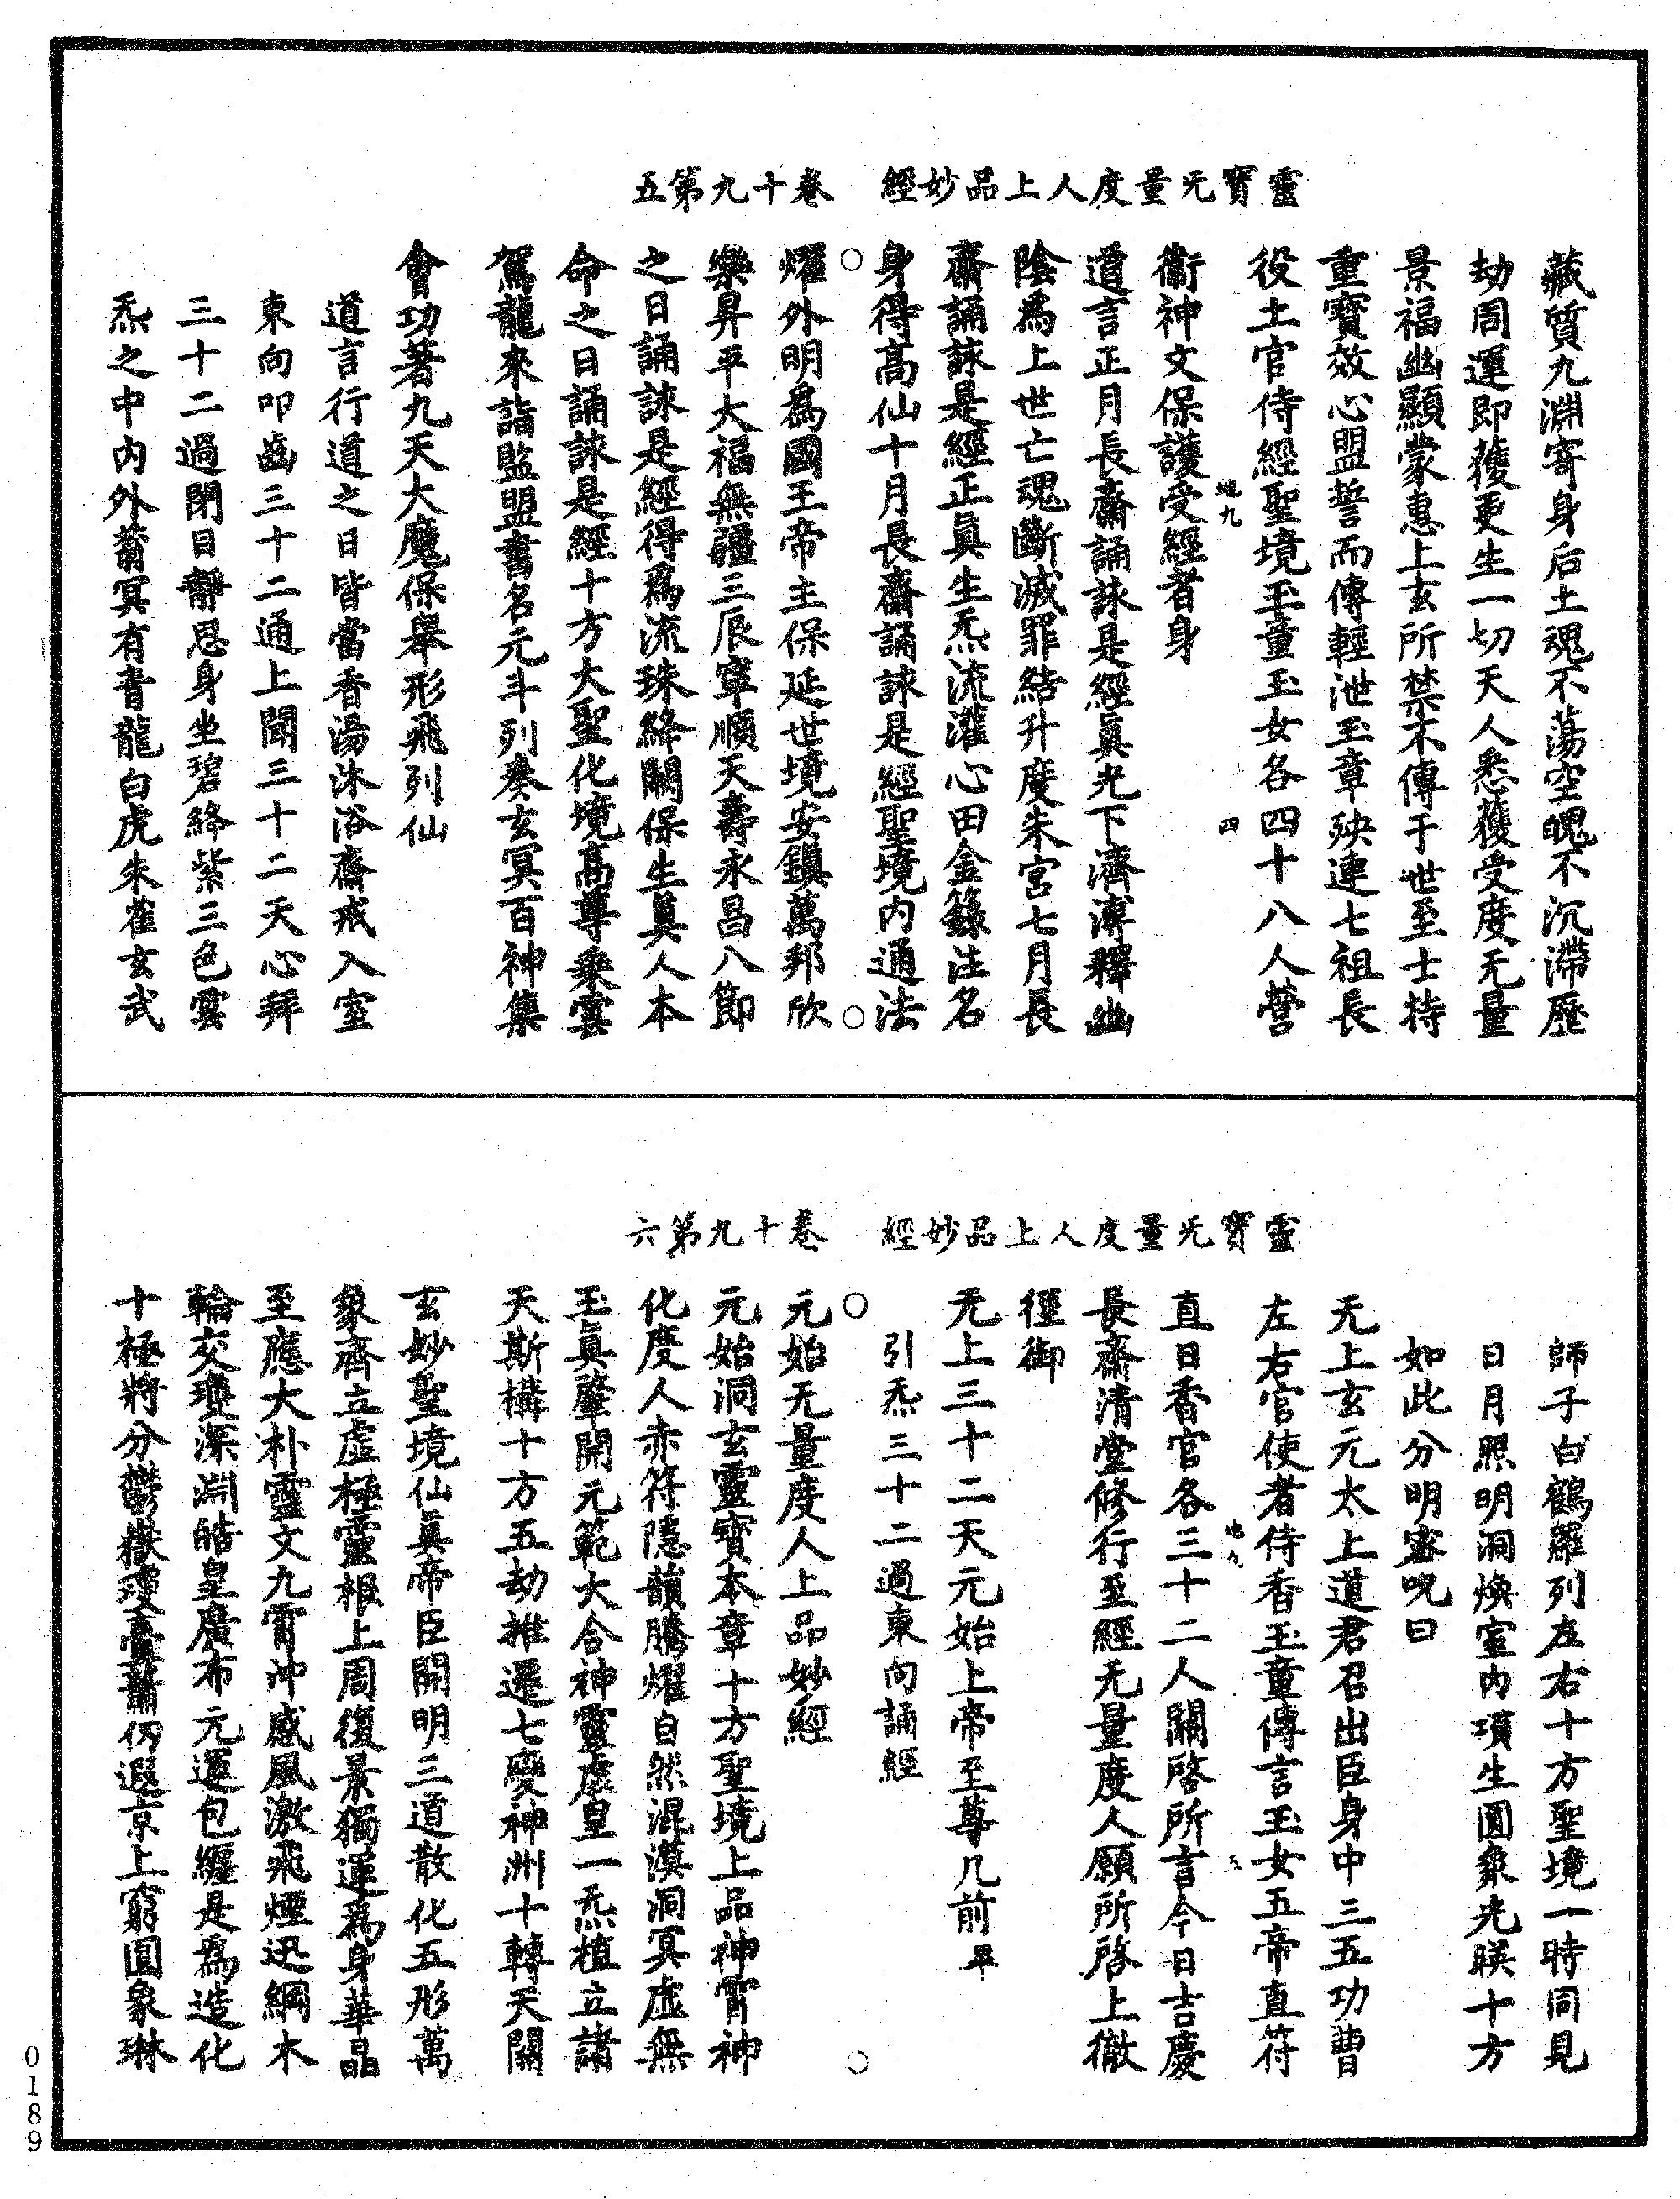 靈寶无量度人上品妙經 卷十九第五
藏質九淵寄身后土魂不蕩空魄不沉滯歷
劫周運即獲更生一切天人悉獲受度无量
景福幽顯蒙惠上玄所禁不傳于世至士持
重寶效心盟誓而傳輕泄玉章殃連七祖長
役土官侍經聖境玉童玉女各四十八人營
衞神文保護受經者身
地九 四
道言正月長齋誦詠是經眞光下濟溥釋幽
陰爲上世亡魂斷滅罪結升度朱宮七月長
齋誦詠是經正眞生炁流灌心田金籙注名
身得高仙十月長齋誦詠是經聖境內通法
燿外明爲國王帝主保延世境安鎮萬邦欣
樂昇平大福無疆三辰寧順天壽永昌八節
之日誦詠是經得爲流珠絳闕保生眞人本
命之日誦詠是經十方大聖化境高尊乘雲
駕龍來詣監盟書名元斗列奏玄冥百神集
會功著九天大魔保舉形飛列仙
道言行道之日皆當香湯沐浴齋戒入室
東向叩齒三十二通上聞三十二天心拜
三十二過閉目靜思身坐碧絳紫三色雲
炁之中內外蓊冥有青龍白虎朱雀玄武
靈寶无量度人上品妙經 卷十九第六
師子白鶴羅列左右十方聖境一時同見
日月照明洞煥室內項生圓象光映十方
如此分明審呪曰
无上玄元太上道君召出臣身中三五功曹
左右官使者侍香玉童傳言玉女五帝直符
直日香官各三十二人關啓所言今日吉慶
長齋清堂修行至經无量度人願所啓上徹
徑御
无上三十二天元始上帝至尊几前畢
引炁三十二過東向誦經
元始无量度人上品妙經
元始洞玄靈寶本章十方聖境上品神霄神
化度人赤符隱韻騰燿自然混漠洞冥虛無
玉眞肇開元範大合神靈虛皇一炁植立諸
天斯構十方五劫推遷七變神洲十轉天關
玄妙聖境仙眞帝臣開明三道散化五形萬
象齊立虛極靈根上周復景獨運爲身華晶
至應大朴靈文九霄沖感風激飛煙迅綱木
輪交瓊深淵皓皇廣布元運包纏是爲造化
十極將分鬱嶽瓊臺蕭仞遐京上窮圓象琳
0189